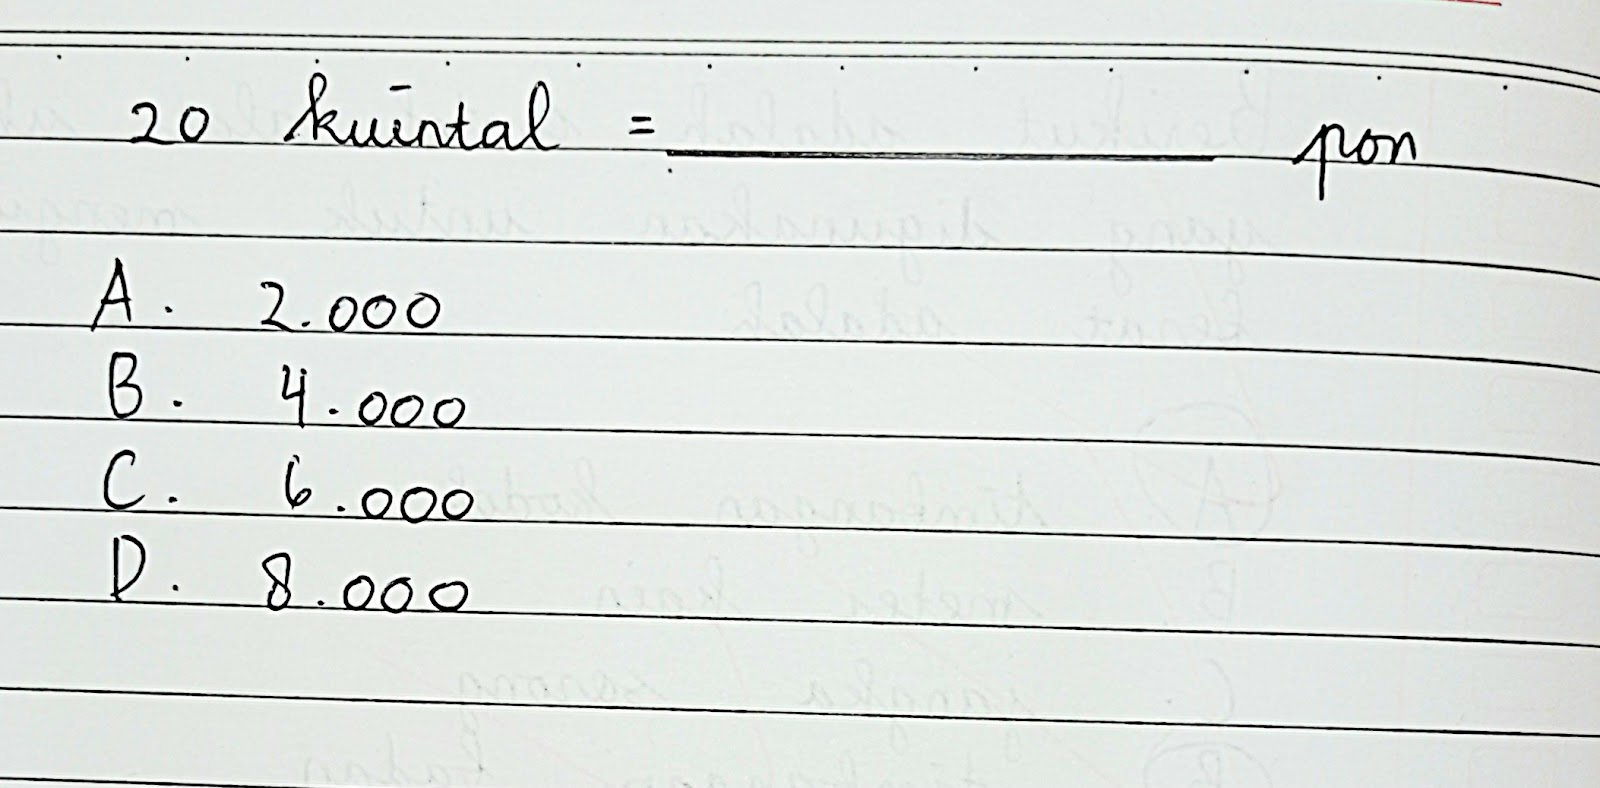 20 kuintal = __________ pon
A. 2.000
B. 4.000
C. 6.000
D. 8.000